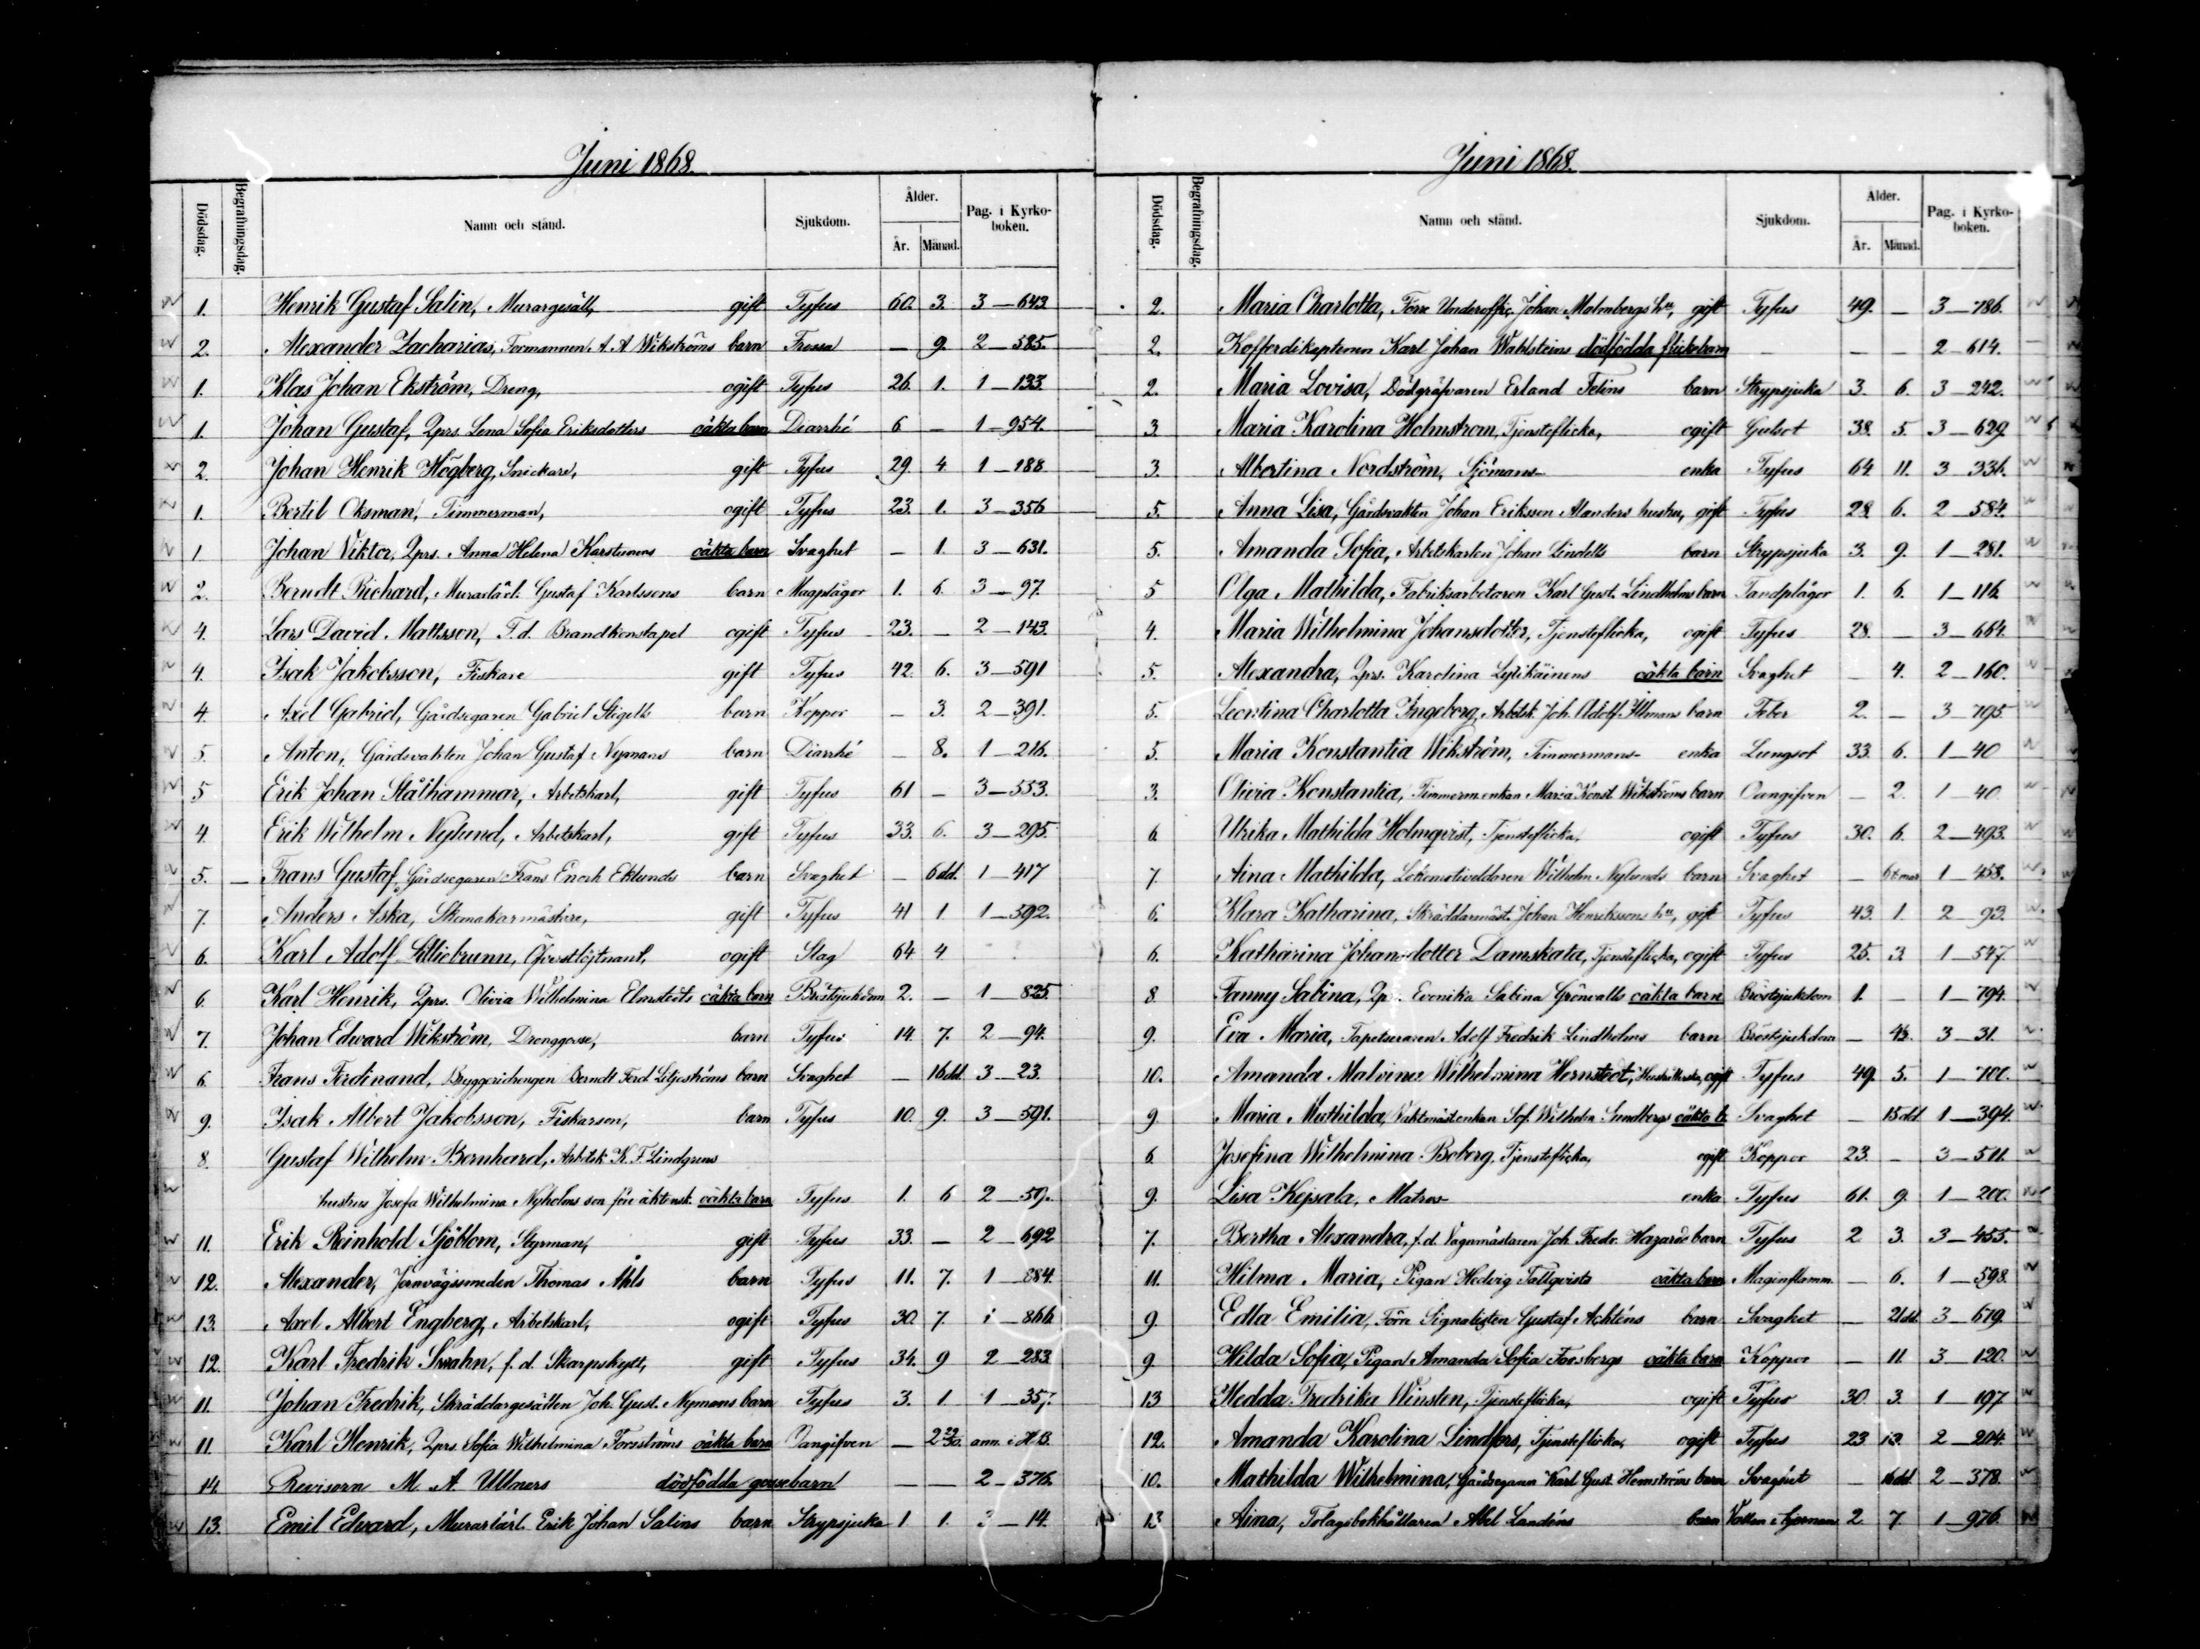 Juni 1868.
Dödsdag. Begrafningsdag. Namn och stånd. Sjukdom. Ålder. År. Månad. Pag. i Kyrkoboken.
1. Henrik Gustaf Salin, Murargesäll, gift Tyfus 60. 3. 3—643
2. Alexander Zacharias, Formannen A. A Wikströms barn Frossa — 9. 2—585.
1. Klas Johan Ekström, Dreng, ogift Tyfus 26. 1. 1—133
1. Johan Gustaf, Qprs. Lena Sofia Eriksdotters oäkta barn Diarrhé 6 — 1—954.
2. Johan Henrik Högberg, Snickare, gift Tyfus 29 4 1—188
1. Bertil Oksman, Timmerman, ogift Tyfus 23. 1. 3—356
1. Johan Viktor, Qprs. Anna Helena Karstunens oäkta barn Svaghet — 1. 3—631.
2. Berndt Richard, Murarlärl. Gustaf Karlssons barn Magplågor 1. 6. 3—97.
4. Lars David Mattsson, F.d. Brandkonstapel ogift Tyfus 23. — 2—143.
4. Isak Jakobsson, Fiskare gift Tyfus 42. 6. 3—591
4. Axel Gabriel, Gårdsegaren Gabriel Stigells barn Koppor — 3. 2—391.
5. Anton, Gårdsvakten Johan Gustaf Nymans barn Diarrhé — 8. 1—216.
5 Erik Johan Stålhammar, Arbetskarl, gift Tyfus 61 — 3—553.
4. Erik Wilhelm Nylund, Arbetskarl, gift Tyfus 33. 6. 3—295.
5. — Frans Gustaf, Gårdsegaren Frans Enoch Eklunds barn Svaghet — 6 dd. 1—417
7. Anders Aska, Skomakarmästare, gift Tyfus 41 1 1—592.
6. Karl Adolf Lilliebrunn, Öfverstlöjtnant, ogift Slag 64 4
6. Karl Henrik, Qprs. Olivia Wilhelmina Elmstedts oäkta barn Bröstsjukdom 2. — 1—825.
7. Johan Edward Wikström, Drenggosse, barn Tyfus 14. 7. 2—94.
6. Frans Ferdinand, Bryggeridrengen Berndt Ferd Liljeströms barn Svaghet — 16 dd. 3—23.
9. Isak Albert Jakobsson, Fiskarson, barn Tyfus 10. 9. 3—591.
8. Gustaf Wilhelm Bernhard, Arbetsk. K. F. Lindgrens
hustrus Josefa Wilhelmina Nyholms son före äktensk. oäkta barn Tyfus 1. 6 2—59.
11. Erik Reinhold Sjöblom, Styrman, gift Tyfus 33. — 2—692
12. Alexander, Jernvägssmeden Thomas Åhls barn Tyfus 11. 7. 1—884.
13. Axel Albert Engberg, Arbetskarl, ogift Tyfus 30. 7. 1—866.
12. Karl Fredrik Svahn, f. d. Skarpskytt, gift Tyfus 34. 9 2 283
11. Johan Fredrik, Skräddargesällen Joh. Gust. Nymans barn Tyfus 3. 1 1—357.
11. Karl Henrik, Qprs. Sofia Wilhelmina Forsströms oäkta barn Oangifven — 2 29/30. ann. i H B.
14. Revisorn M. A. Ullners dödfödda gossebarn — — 2—376.
13. Emil Edvard, Murarlärl. Erik Johan Salins barn Strypsjuka 1 1. 3—14.
Juni 1868.
Dödsdag. Begrafningsdag. Namn och stånd. Sjukdom. Ålder. År. Månad. Pag. i Kyrkoboken.
2. Maria Charlotta, Förre Underoffic. Johan Malmbergs hu, gift Tyfus 49. — 3—786.
2. Kofferdikaptenen Karl Johan Wahlsteins dödfödda flickebarn — — — 2—614.
2. Maria Lovisa, Dödgräfvaren Erland Felins barn Strypsjuka 3. 6. 3—242.
3. Maria Karolina Holmstrom, Tjensteflicka, ogift Gulsot 38. 5. 3—629.
3. Albertina Nordström, Sjömans- enka Tyfus 64. 11. 3 336.
5. Anna Lisa, Gårdsvakten Johan Eriksson Alanders hustru, gift Tyfus 28. 6. 2—584.
5. Amanda Sofia, Arbetskarlen Johan Lindells barn Strypsjuka 3. 9. 1—281.
5 Olga Mathilda, Fabriksarbetaren Karl Gust. Lindholms barn Tandplågor 1. 6. 1—116.
4. Maria Wilhelmina Johansdotter, Tjensteflicka, ogift Tyfus 28. — 3—664.
5. Alexandra, Qprs. Karolina Lylikäinens oäkta barn Svaghet — 4. 2—160.
5. Leontina Charlotta Ingeborg, Arbetsk. Joh. Adolf Illmans barn Feber 2. — 3—795.
5. Maria Konstantia Wikström, Timmermans- enka Lungsot 33. 6. 1—40
3. Olivia Konstantia, Timmerm.enkan Maria Konst. Wikströms barn Oangifven — 2. 1—40.
6. Ulrika Mathilda Holmqvist, Tjensteflicka, ogift Tyfus 30. 6. 2—493.
7. Aina Mathilda, Lokomotiveldaren Wilhelm Nylunds barn Svaghet — 1—458.
6. Klara Katharina, Skräddarmäst. Johan Henrikssons hu, gift Tyfus 43. 1. 2—93.
6. Katharina Johansdotter Damskata, Tjensteflicka, ogift Tyfus 25. 3. 1—547.
8. Fanny Sabina, Qp. Evenika Sabina Grönvalls oäkta barn Bröstsjukdom 1. — 1—794.
9. Eva Maria, Tapetseraren Adolf Fredrik Lindholms barn Bröstsjukdom — 3—31.
10. Amanda Malvina Wilhelmina Hernstedt, Hushållerska, ogift Tyfus 49. 5. 1—700.
9 Maria Mathilda, Vaktmäst.enkan Sof. Wilhelm Sundbergs oäkta b. Svaghet — 15 dd 1—394.
6. Josefina Wilhelmina Boberg, Tjensteflicka, ogift Koppor 23. — 3—511.
9. Lisa Kejsala, Matros- enka Tyfus 61. 9. 1—200.
7. Bertha Alexandra, f.d. Vagnmästaren Joh. Fredr. Hazards barn Tyfus 2 3. 3—455.
11. Hilma Maria, Pigan Hedvig Tallqvists oäkta barn Maginflamm. — 6. 1—598.
9 Edla Emilia, Förre Signalisten Gustaf Achténs barn Svaghet — 21 dd. 3—619.
9 Hilda Sofia, Pigan Amanda Sofia Forsbergs oäkta barn Koppor — 11. 3—120.
13 Hedda Fredrika Winsten, Tjensteflicka, ogift Tyfus 30 3. 1—197
12. Amanda Karolina Lindfors, Tjensteflicka, ogift Tyfus 23 2—204.
10. Mathilda Wilhelmina, Gårdsegaren Karl Gust. Hemströms barn Svaghet — 16 dd. 2—378.
13 Aina, Tolagsbokhållaren Abel Landéns barn Vatten i hjernan 2 7. 1—976.